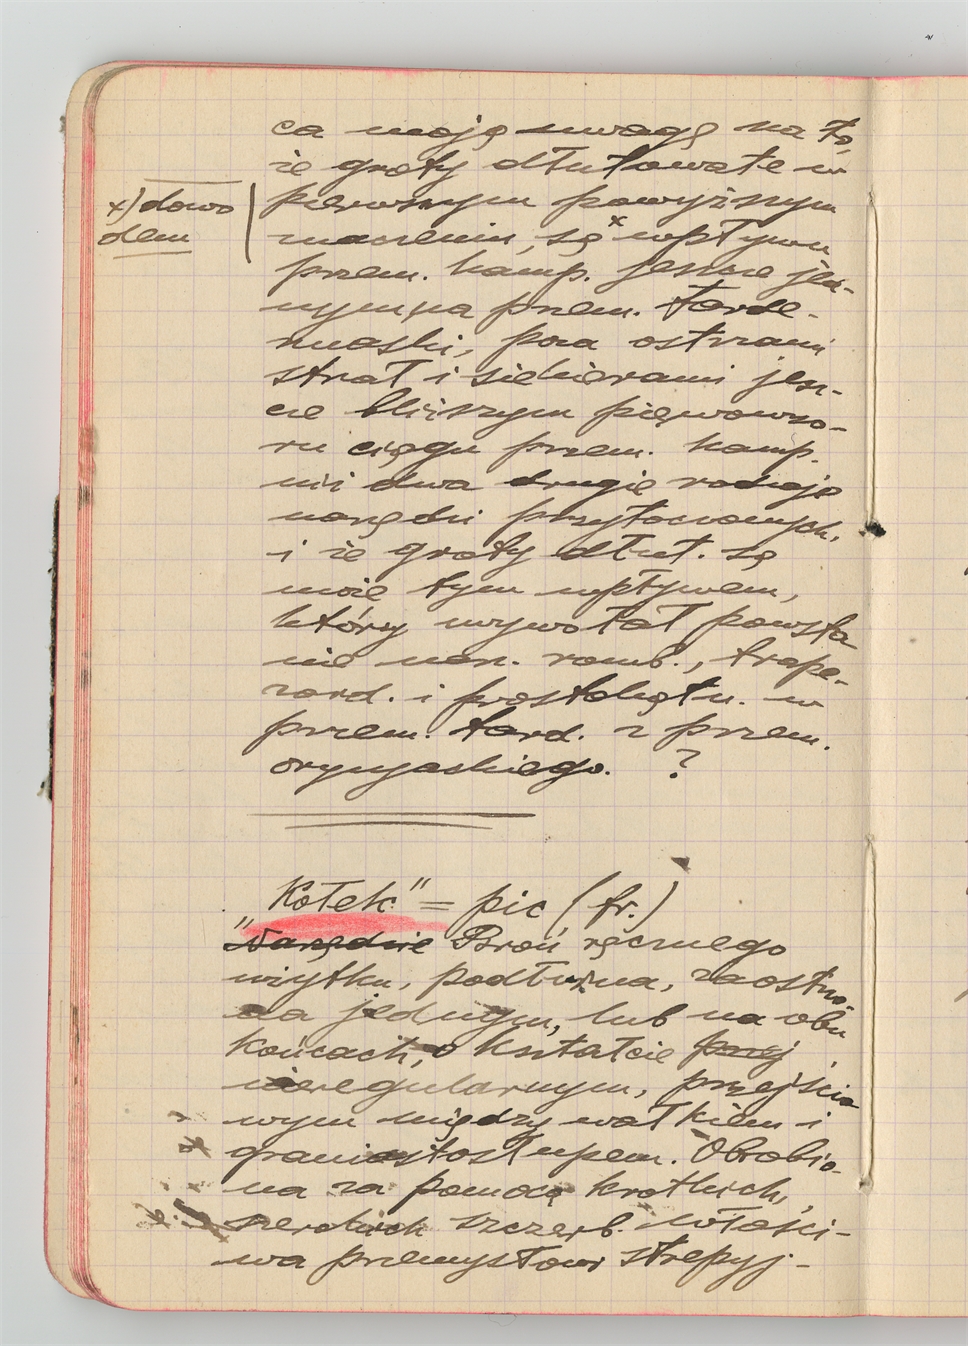 ca moję uwagę na to,
że groty dłutowate w
pierwszym powyższym
x) dowo
dem
znaczeniu, są x wpływu
przem. kamp. jeszcze jed-
nym na przem. tarde-
nuaski, poza ostrzami
strzał i siekierami jesz-
cze bliższym pierwowzo-
ru ciągu przem. kamp.
niż dwa drugie rodzaje
narzędzi przytoczonych,
i że groty dłut. są
może tym wpływem,
który wywołał powsta
nie narz. romb., trape-
zoid. i prostokątn. w
przem. tard. z przem.
oryniaskiego. ?
"Kołek" = pic (fr.)
Narzędzie Broń ręcznego
użytku, podłużna, zaostrzo-
na jednym, lub na obu
końcach, o kształcie przej
nieregularnym, przejścio
wym między wałkiem i
graniastosłupem. Obrobio-
na za pomocą krótkich,
szerokich szczerb. Właści-
wa przemysłowi strepyj-